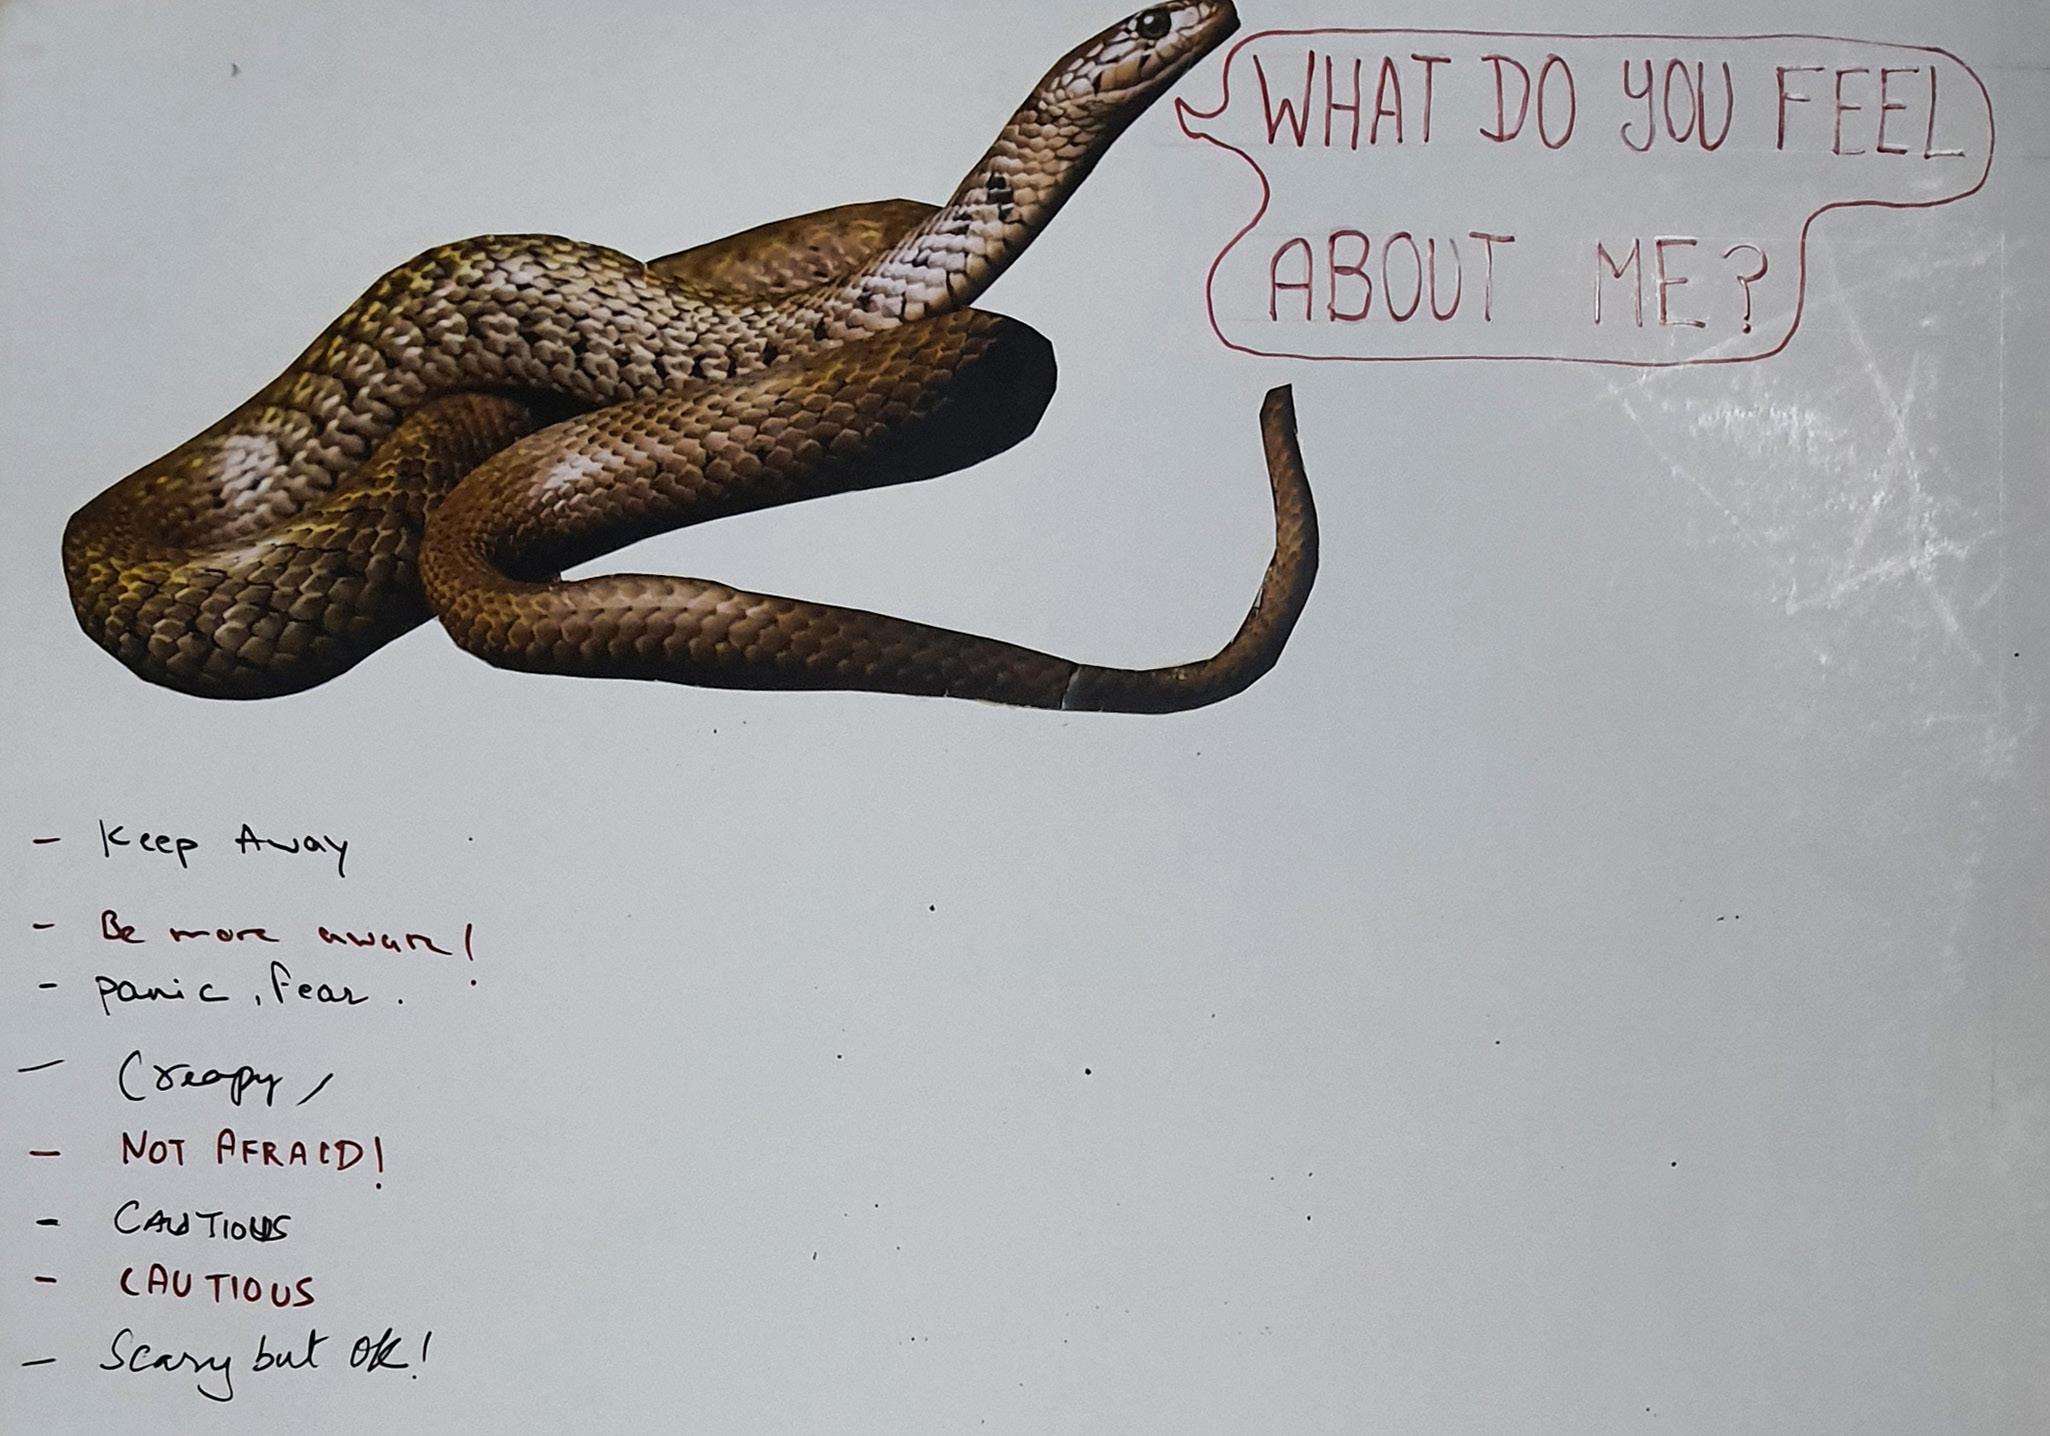 WHAT DO YOU FEEL
ABOUT ME?
- Keep Away
- Be more aware!
- panic, fear.
- Creapy /
- NOT AFRAID!
- CAUTIOUS
- CAUTIOUS
- Scary but OK!